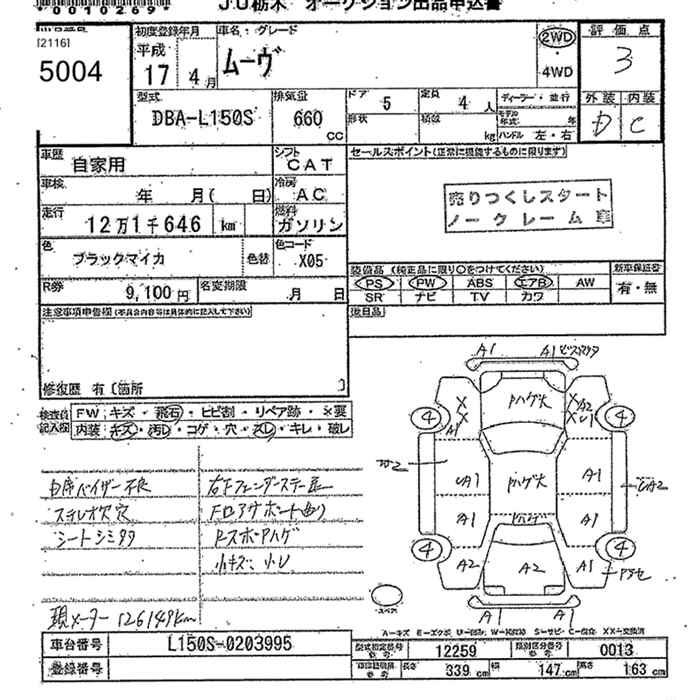 00102697
JU栃木 オークション出品申込書
[2116]
5004
初度登録年月
平成
17 4月
車名・グレード
ムーヴ
2WD
4WD
評価点
3
外装 内装
D C
型式
DBA-L150S
排気量
660
CC
ドア
5
形状
定員
4人
積数
kg
ディーラー・並行
モデル年式 年
ハンドル 左・右
車歴
自家用
シフト
CAT
車検
年 月( 日)
冷房
AC
走行
12万1千646 km
燃料
ガソリン
色
ブラックマイカ
色替
色コード
X05
R券
9,100円
名変期限
月 日
セールスポイント(正常に機能するものに限ります)
売りつくしスタート
ノークレーム車
装備品(純正品に限り○をつけてください)
PS PW ABS エアB AW
SR ナビ TV カワ
新車保証書
有・無
後日品
注意事項申告欄(不具合内容等は具体的に記入して下さい)
修復歴 有〔箇所 〕
検査員記入欄
FW キズ・飛石・ヒビ割・リペア跡・×要
内装 キズ・汚レ・コゲ・穴・スレ・キレ・破レ
内席バイザー不良
ステレオ欠穴
シートシミタタ
右Fフェンダーステー
小キズ 小レ
現メーター126149km
A1 A1
ハゲ大
X X A1
X A2
X U1
4 4
UA1
ハゲ大
A1
UA2
A1
ハゲ
A1
4 4
A2 A2 A1
A1 A1
スペア
A-キズ E-エクボ U-凹み W-補修跡 S-サビ C-腐食 XX-交換済
車台番号
L150S-0203995
登録番号
型式指定番号 参考
12259
類別区分番号 参考
0013
長さ 339 cm 幅 147 cm 高さ 163 cm